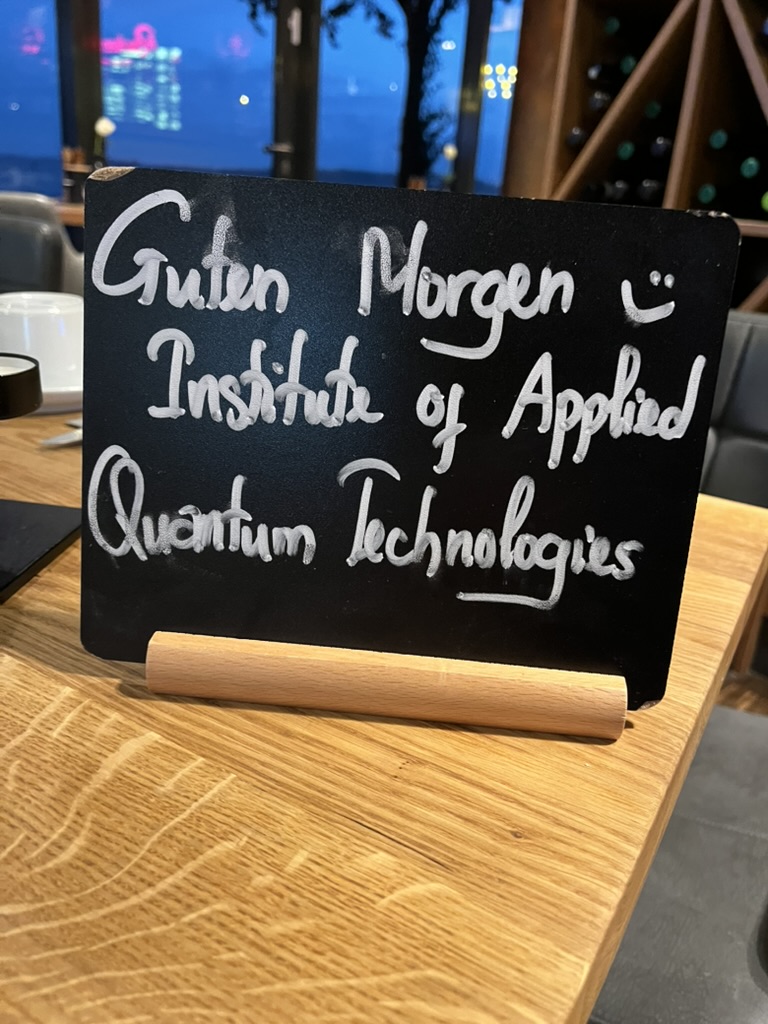 Guten Morgen :)
Institute of Applied
Quantum Technologies